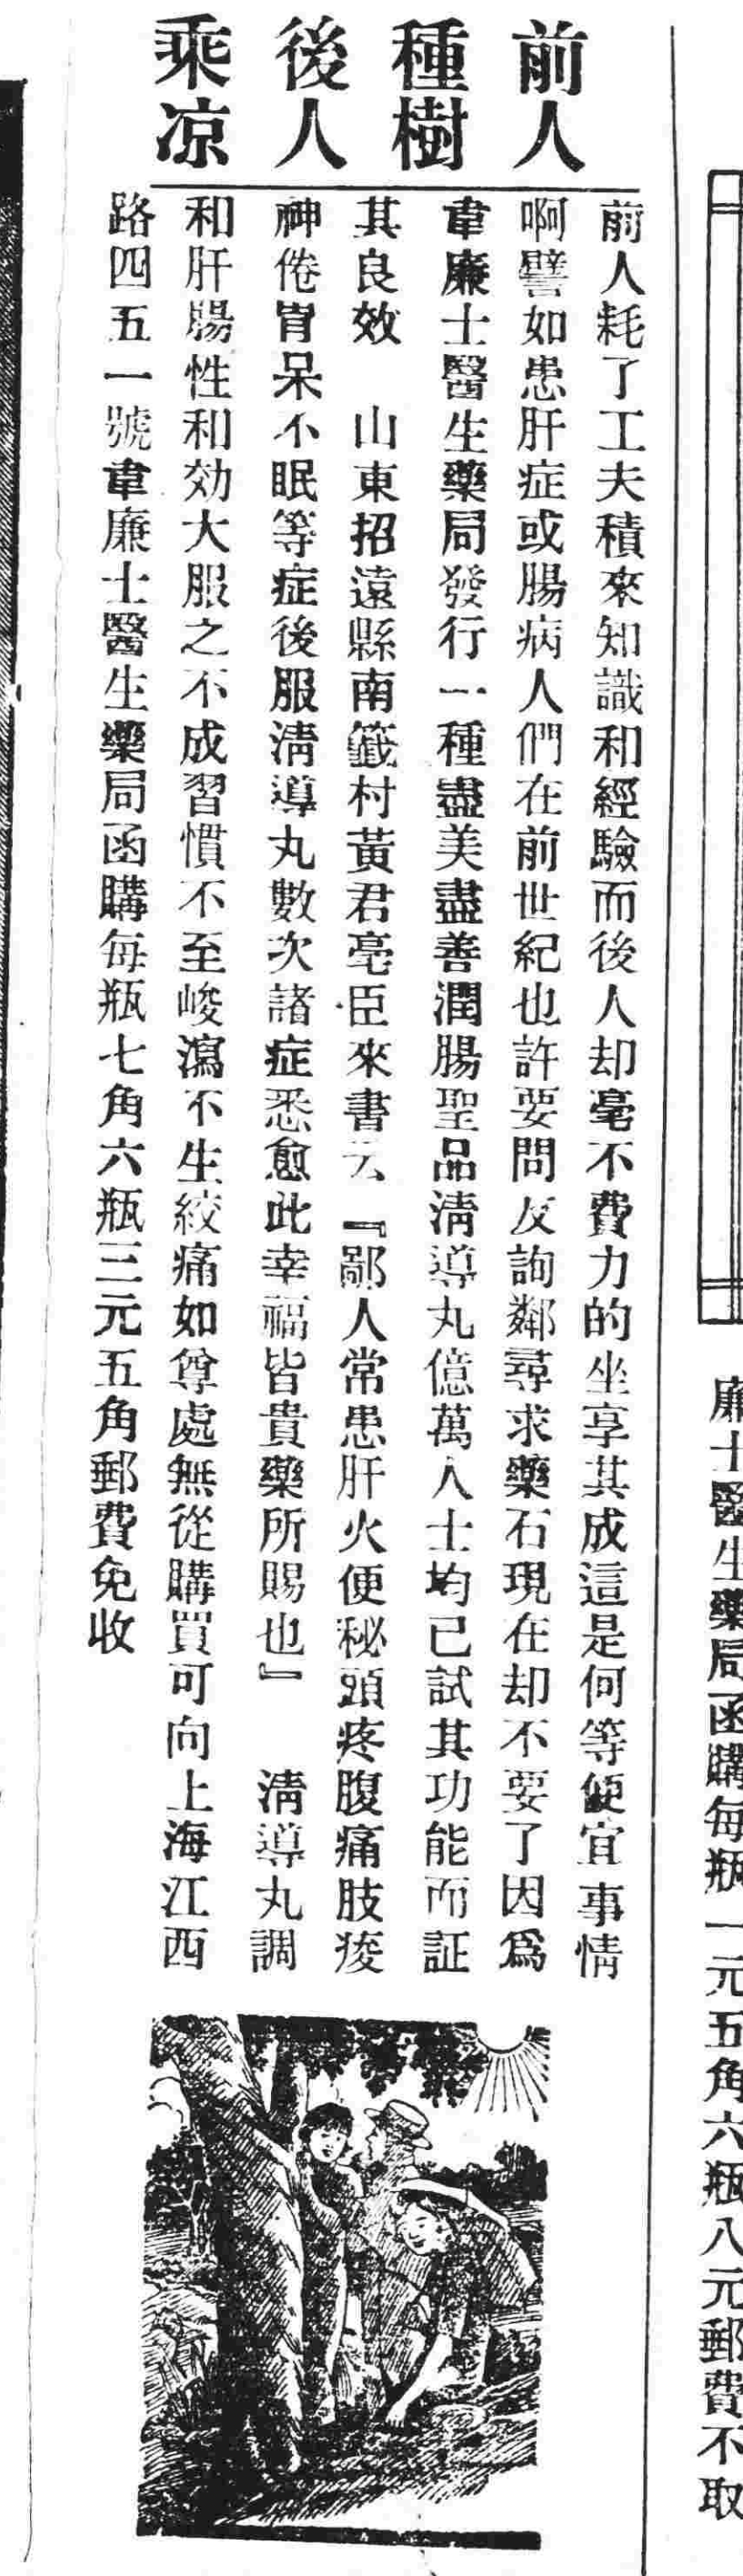 前人
種樹
後人
乘凉
前人耗了工夫積來知識和經驗而後人却毫不費力的坐享其成這是何等便宜事情
啊譬如患肝症或腸病人們在前世紀也許要問友詢鄰尋求藥石現在却不要了因爲
韋廉士醫生藥局發行一種盡美盡善潤腸聖品淸導丸億萬人士均已試其功能而証
其良效　山東招遠縣南籤村黃君亳臣來書云『鄙人常患肝火便秘頭疼腹痛肢痠
神倦胃呆不眠等症後服淸導丸數次諸症悉愈此幸福皆貴藥所賜也』　淸導丸調
和肝腸性和効大服之不成習慣不至峻瀉不生絞痛如尊處無從購買可向上海江西
路四五一號韋廉士醫生藥局函購每瓶七角六瓶三元五角郵費免收
廉士醫生藥局函購每瓶一元五角六瓶八元郵費不取